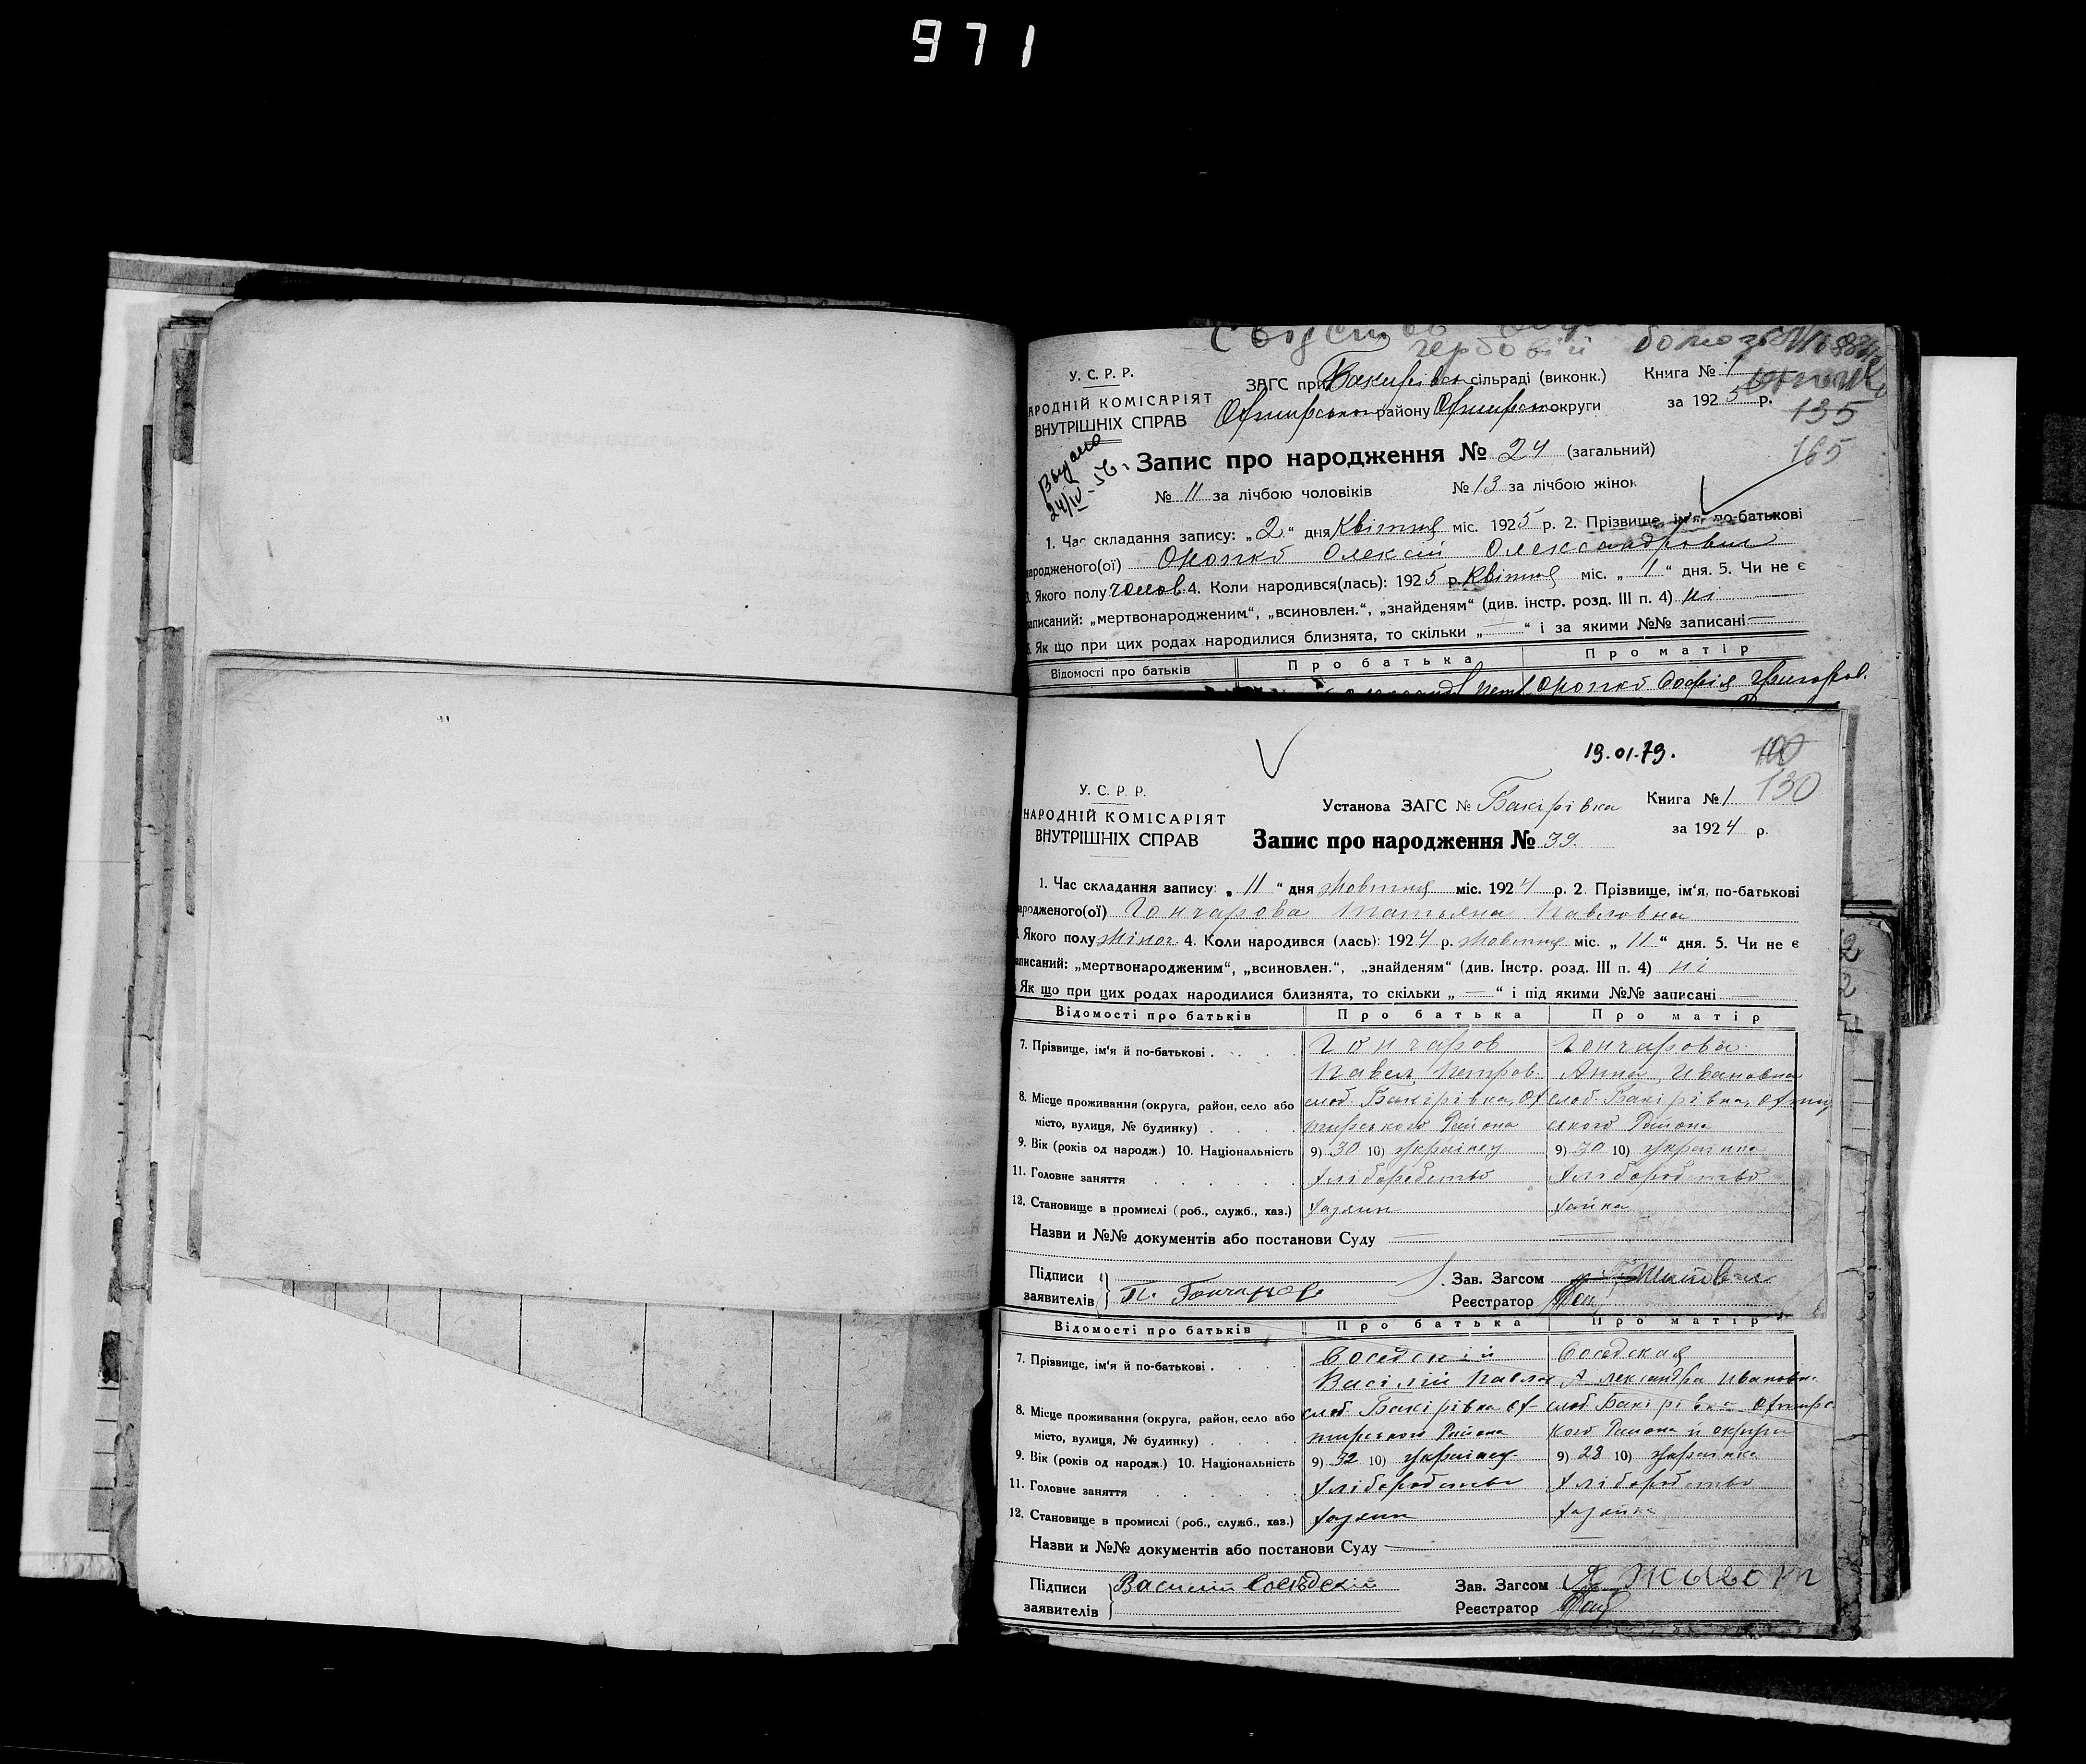 971
гербовій
У. С. Р. Р.
НАРОДНІЙ КОМІСАРІЯТ
ВНУТРІШНІХ СПРАВ
ЗАГС при Бакирівськ сільраді (виконк.) Книга № 1
Охтирськом району Охтирськ округи за 1925 р.
135
165
Выдано
24/IV-56
Запис про народження № 24 (загальний)
№ 11 за лічбою чоловіків № 13 за лічбою жінок
1. Час складання запису: „2“ дня Квітня міс. 1925 р. 2. Прізвище, ім'я, по-батькові
народженого(ої) Олексій Олександрович
3. Якого полу чолов. 4. Коли народився(лась): 1925 р. Квітня міс. „1“ дня. 5. Чи не є
записаний: „мертвонародженим“, „всиновлен.“, „знайденям“ (див. інстр. розд. III п. 4) ні
6. Як що при цих родах народилися близнята, то скільки „—“ і за якими №№ записані —
Відомості про батьків Про батька Про матір
Софія Григоров.
19.01.79.
100
130
У. С. Р. Р.
НАРОДНІЙ КОМІСАРІЯТ
ВНУТРІШНІХ СПРАВ
Установа ЗАГС № Бакірівка Книга № 1
за 1924 р.
Запис про народження № 39.
1. Час складання запису: „11“ дня жовтня міс. 1924 р. 2. Прізвище, ім'я, по-батькові
народженого(ої) Гончарова Татьяна Павловна
Якого полу жіноч. 4. Коли народився (лась): 1924 р. жовтня міс. „11“ дня. 5. Чи не є
записаний: „мертвонародженим“, „всиновлен.“, „знайденям“ (див. Інстр. розд. III п. 4) ні
Як що при цих родах народилися близнята, то скільки „—“ і під якими №№ записані —
Відомості про батьків Про батька Про матір
7. Прізвище, ім'я й по-батькові . . . . Гончаров Гончарова
Павел Петров. Анна Ивановна
8. Місце проживання (округа, район, село або слоб. Бакірівка, Ох слоб. Бакірівка, Охтир
місто, вулиця, № будинку) . . . . тирського Района ського Района
9. Вік (років од народж.) 10. Національність 9) 30 10) Українец 9) 30 10) Українка
11. Головне заняття . . . . . Хліборобство Хліборобство
12. Становище в промислі (роб., служб., хаз.) Хазяин
Назви и №№ документів або постанови Суду —
Підписи
заявителів П. Гончаров
Зав. Загсом
Реєстратор
Відомості про батьків Про батька Про матір
7. Прізвище, ім'я й по-батькові . . . . Соседскій Соседская
Васілій Павлов Александра Ивановн.
8. Місце проживання (округа, район, село або слоб. Бакірівка Ох- слоб. Бакірівка Охтирс
місто, вулиця, № будинку) . . . . тирского Района кого Района й округи
9. Вік (років од народж.) 10. Національність 9) 32 10) Українец 9) 28 10) Українка
11. Головне заняття . . . . . Хліборобство Хліборобство
12. Становище в промислі (роб., служб., хаз.) Хазяин Хазяйка
Назви и №№ документів або постанови Суду —
Підписи
заявителів Василий Соседский
Зав. Загсом
Реєстратор